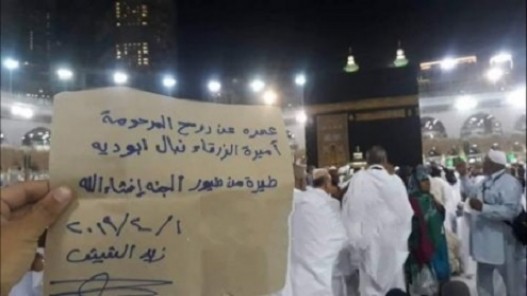 عمره عن روح المرحومة
أميرة الزرقاء نبال ابوديه
طيرة من طيور الجنه إنشاءالله